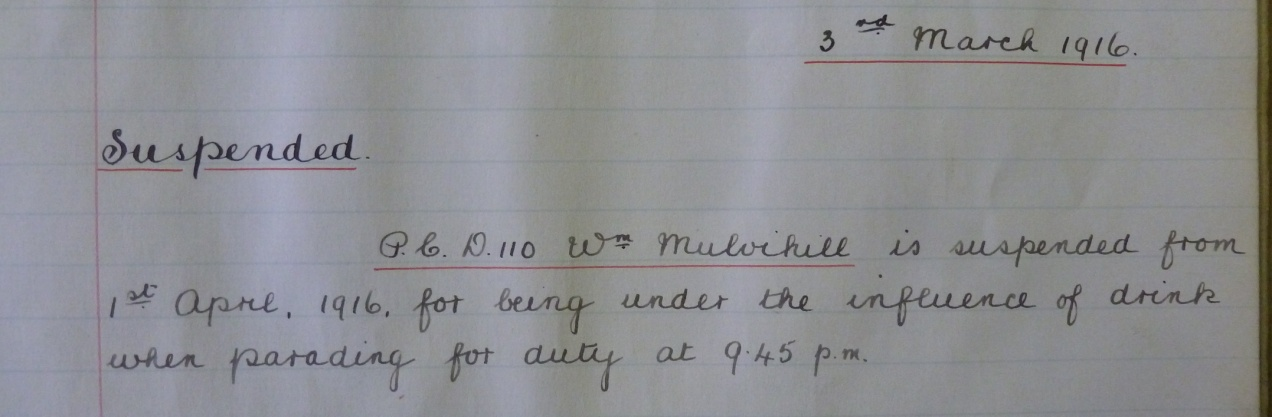 3rd March 1916.
Suspended.
P.C. D.110 Wm Mulvihill is suspended from
1st April, 1916, for being under the influence of drink
when parading for duty at 9.45 p.m.